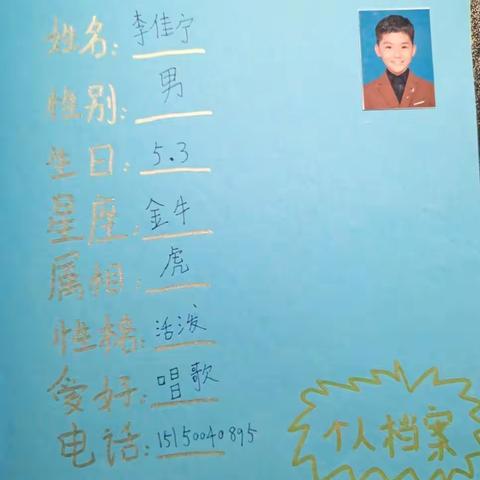 姓名：李佳宁
性别：男
生日：5.3
星座：金牛
属相：虎
性格：活泼
爱好：唱歌
电话：15150040895
个人档案